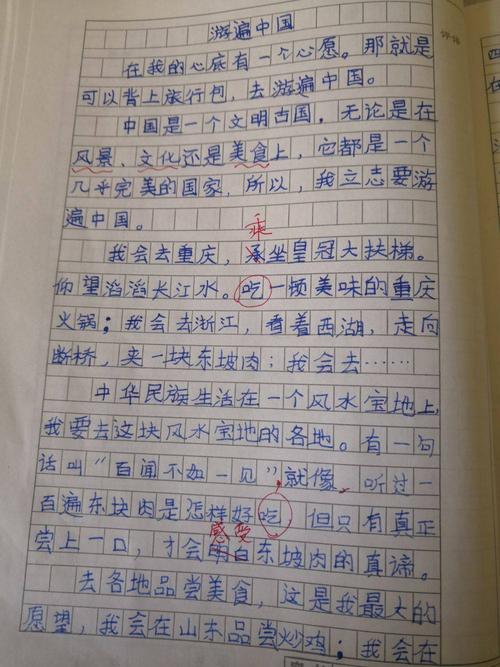 游遍中国
评语
在我的心底有一个心愿。那就是
可以背上旅行包，去游遍中国。
中国是一个文明古国，无论是在
风景、文化还是美食上，它都是一个
几乎完美的国家，所以，我立志要游
遍中国。
乘
我会去重庆，承坐皇冠大扶梯。
仰望滔滔长江水。吃一顿美味的重庆
火锅；我会去浙江，看着西湖，走向
断桥，夹一块东坡肉；我会去……
中华民族生活在一个风水宝地上，
我要去这块风水宝地的各地。有一句
话叫“百闻不如一见”，就像，听过一
百遍东块肉是怎样好吃，但只有真正
感受
尝上一口，才会明白东坡肉的真谛。
去各地品尝美食，这是我最大的
愿望，我会在山东品尝炒鸡；我会在